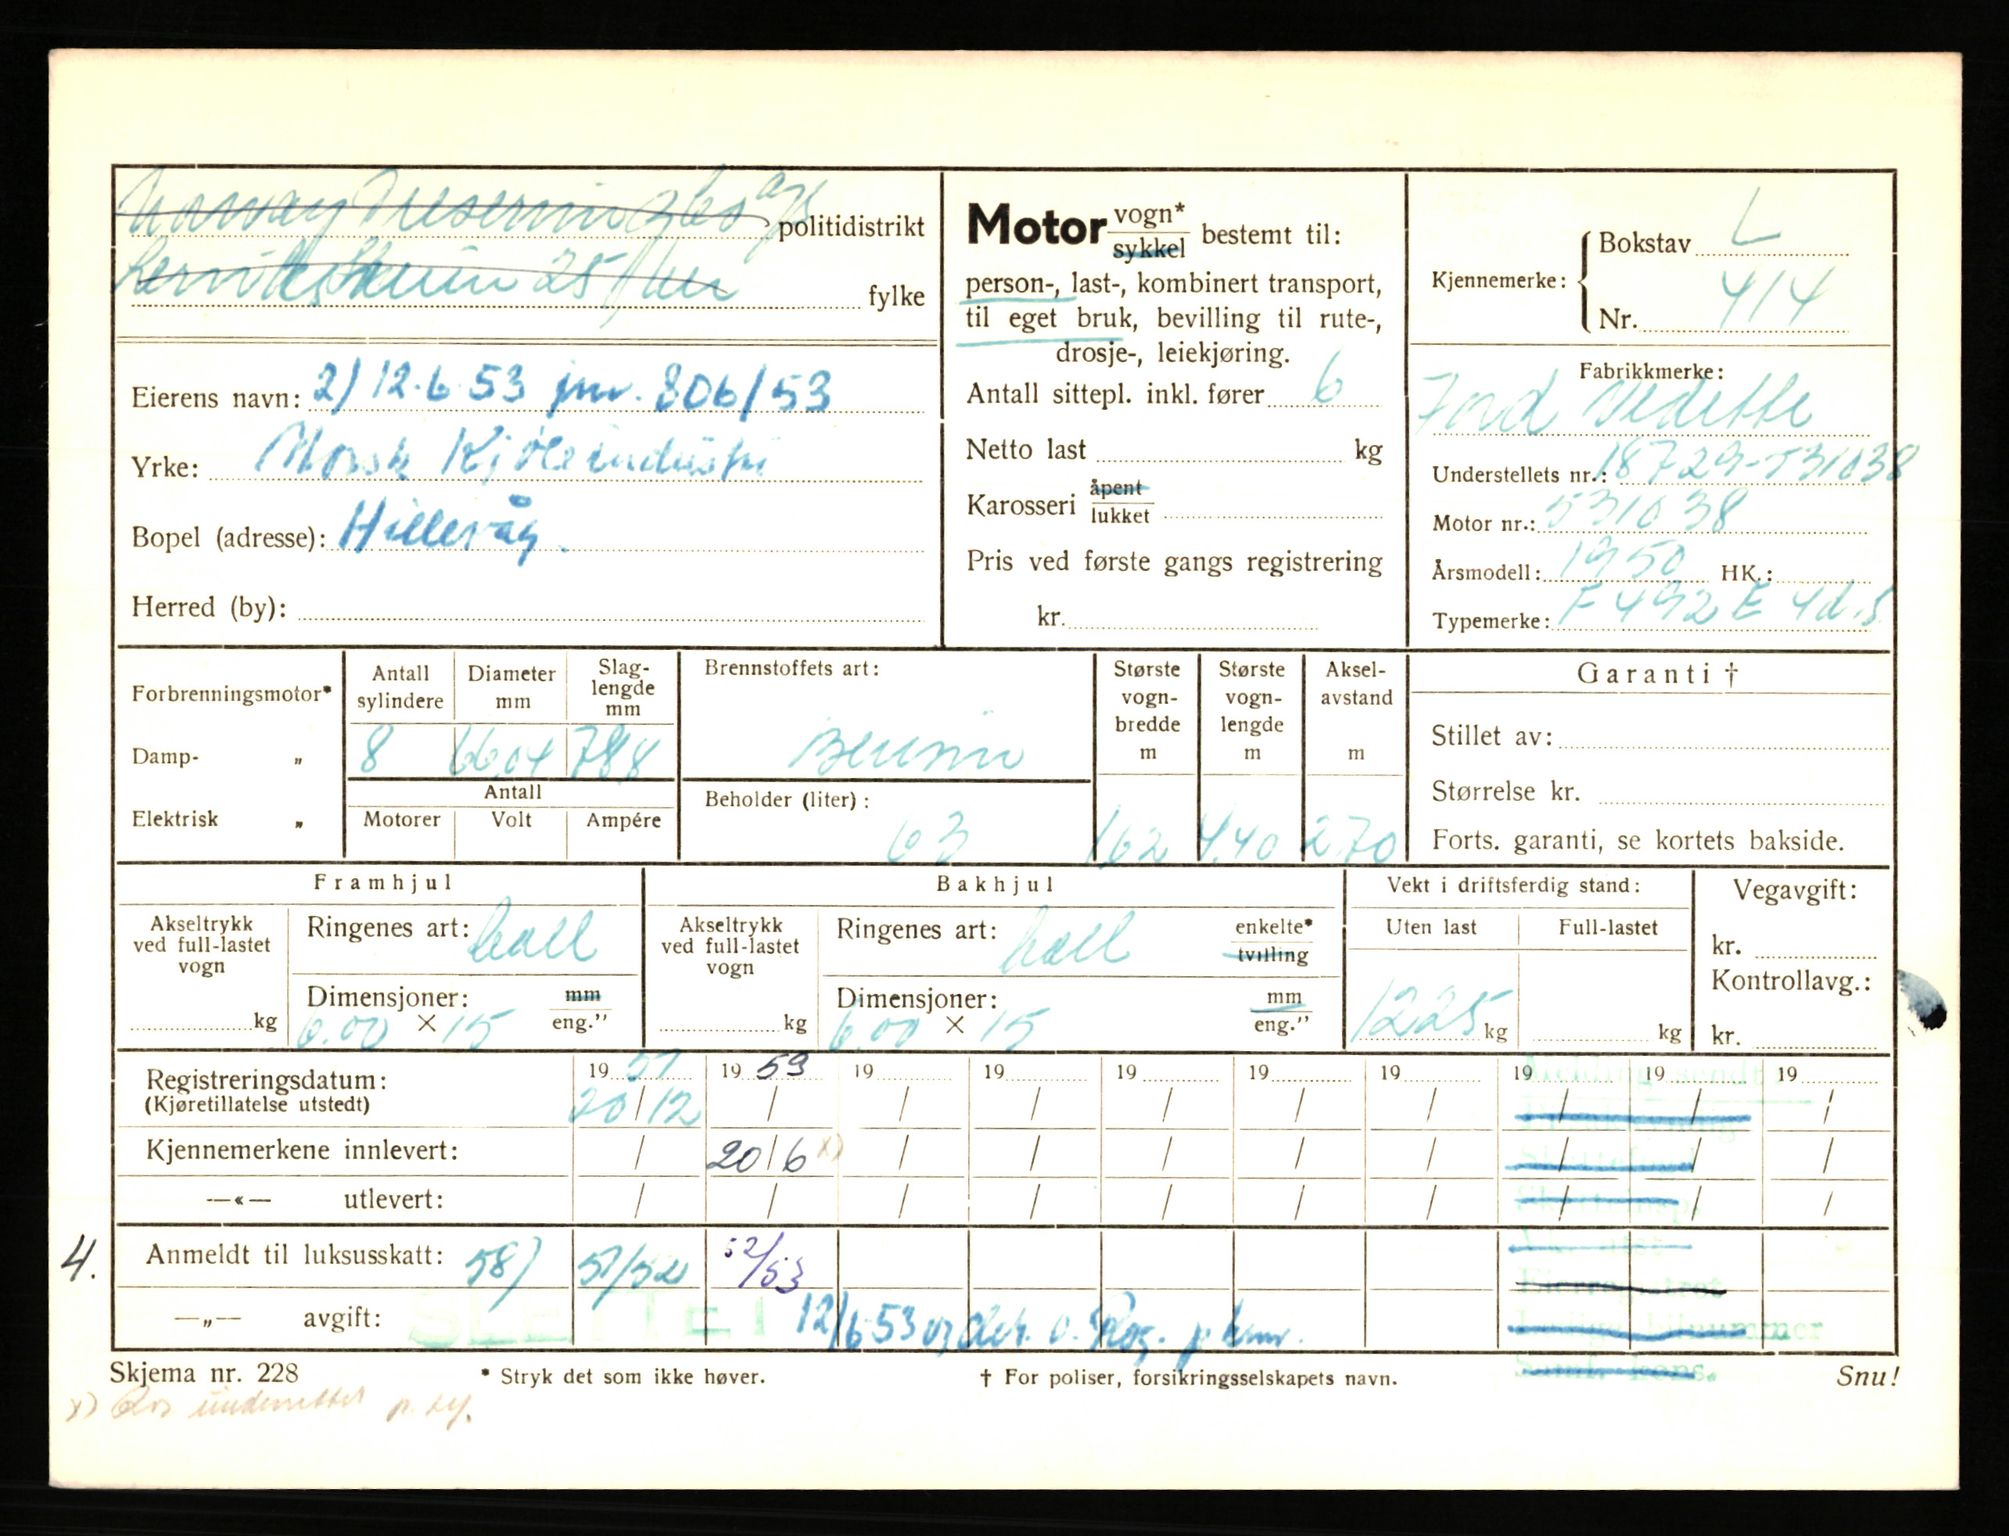 Norway Preserving Co a/s politidistrikt
25 fylke
Eierens navn: 2) 12.6.53 jnr. 806/53
Yrke: Norsk Kjøleindustri
Bopel (adresse): Hillevåg.
Herred (by):
Motor vogn* sykkel bestemt til:
person-, last-, kombinert transport,
til eget bruk, bevilling til rute-,
drosje-, leiekjøring.
Antall sittepl. inkl. fører 6
Netto last kg
Karosseri åpent lukket
Pris ved første gangs registrering
kr.
Kjennemerke: Bokstav L
Nr. 414
Fabrikkmerke:
Ford Vedette
Understellets nr.: 18729-531038
Motor nr.: 531038
Årsmodell: 1950 HK.:
Typemerke: F 492 E 4d.s.
Forbrenningsmotor*
Damp- „
Elektrisk „
Antall sylindere
Diameter mm
Slag-lengde mm
8 66.04 78.8
Antall
Motorer Volt Ampére
Brennstoffets art:
Bensin
Beholder (liter):
63
Største vogn-bredde m
162
Største vogn-lengde m
4.40
Aksel-avstand m
270
Garanti †
Stillet av:
Størrelse kr.
Forts. garanti, se kortets bakside.
Framhjul
Akseltrykk ved full-lastet vogn
kg
Ringenes art: ball
Dimensjoner: mm eng."
6.00 × 15
Bakhjul
Akseltrykk ved full-lastet vogn
kg
Ringenes art: ball enkelte* tvilling
Dimensjoner: mm eng."
6.00 × 15
Vekt i driftsferdig stand:
Uten last Full-lastet
1225 kg kg
Vegavgift:
kr.
Kontrollavg.:
kr.
Registreringsdatum: 19 51 19 53 19 19 19 19 19 19 19 19
(Kjøretillatelse utstedt) 20/12 / / / / / / / / /
Kjennemerkene innlevert: / 20/6 x) / / / / / / / /
—«— utlevert: / / / / / / / / / /
4. Anmeldt til luksusskatt: 58) 51/52 52/53
—„— avgift:
SLETTET
12/6 53 og
Melding sendt:
Skjema nr. 228
* Stryk det som ikke høver.
† For poliser, forsikringsselskapets navn.
Snu!
x) underrettet p. tlf.